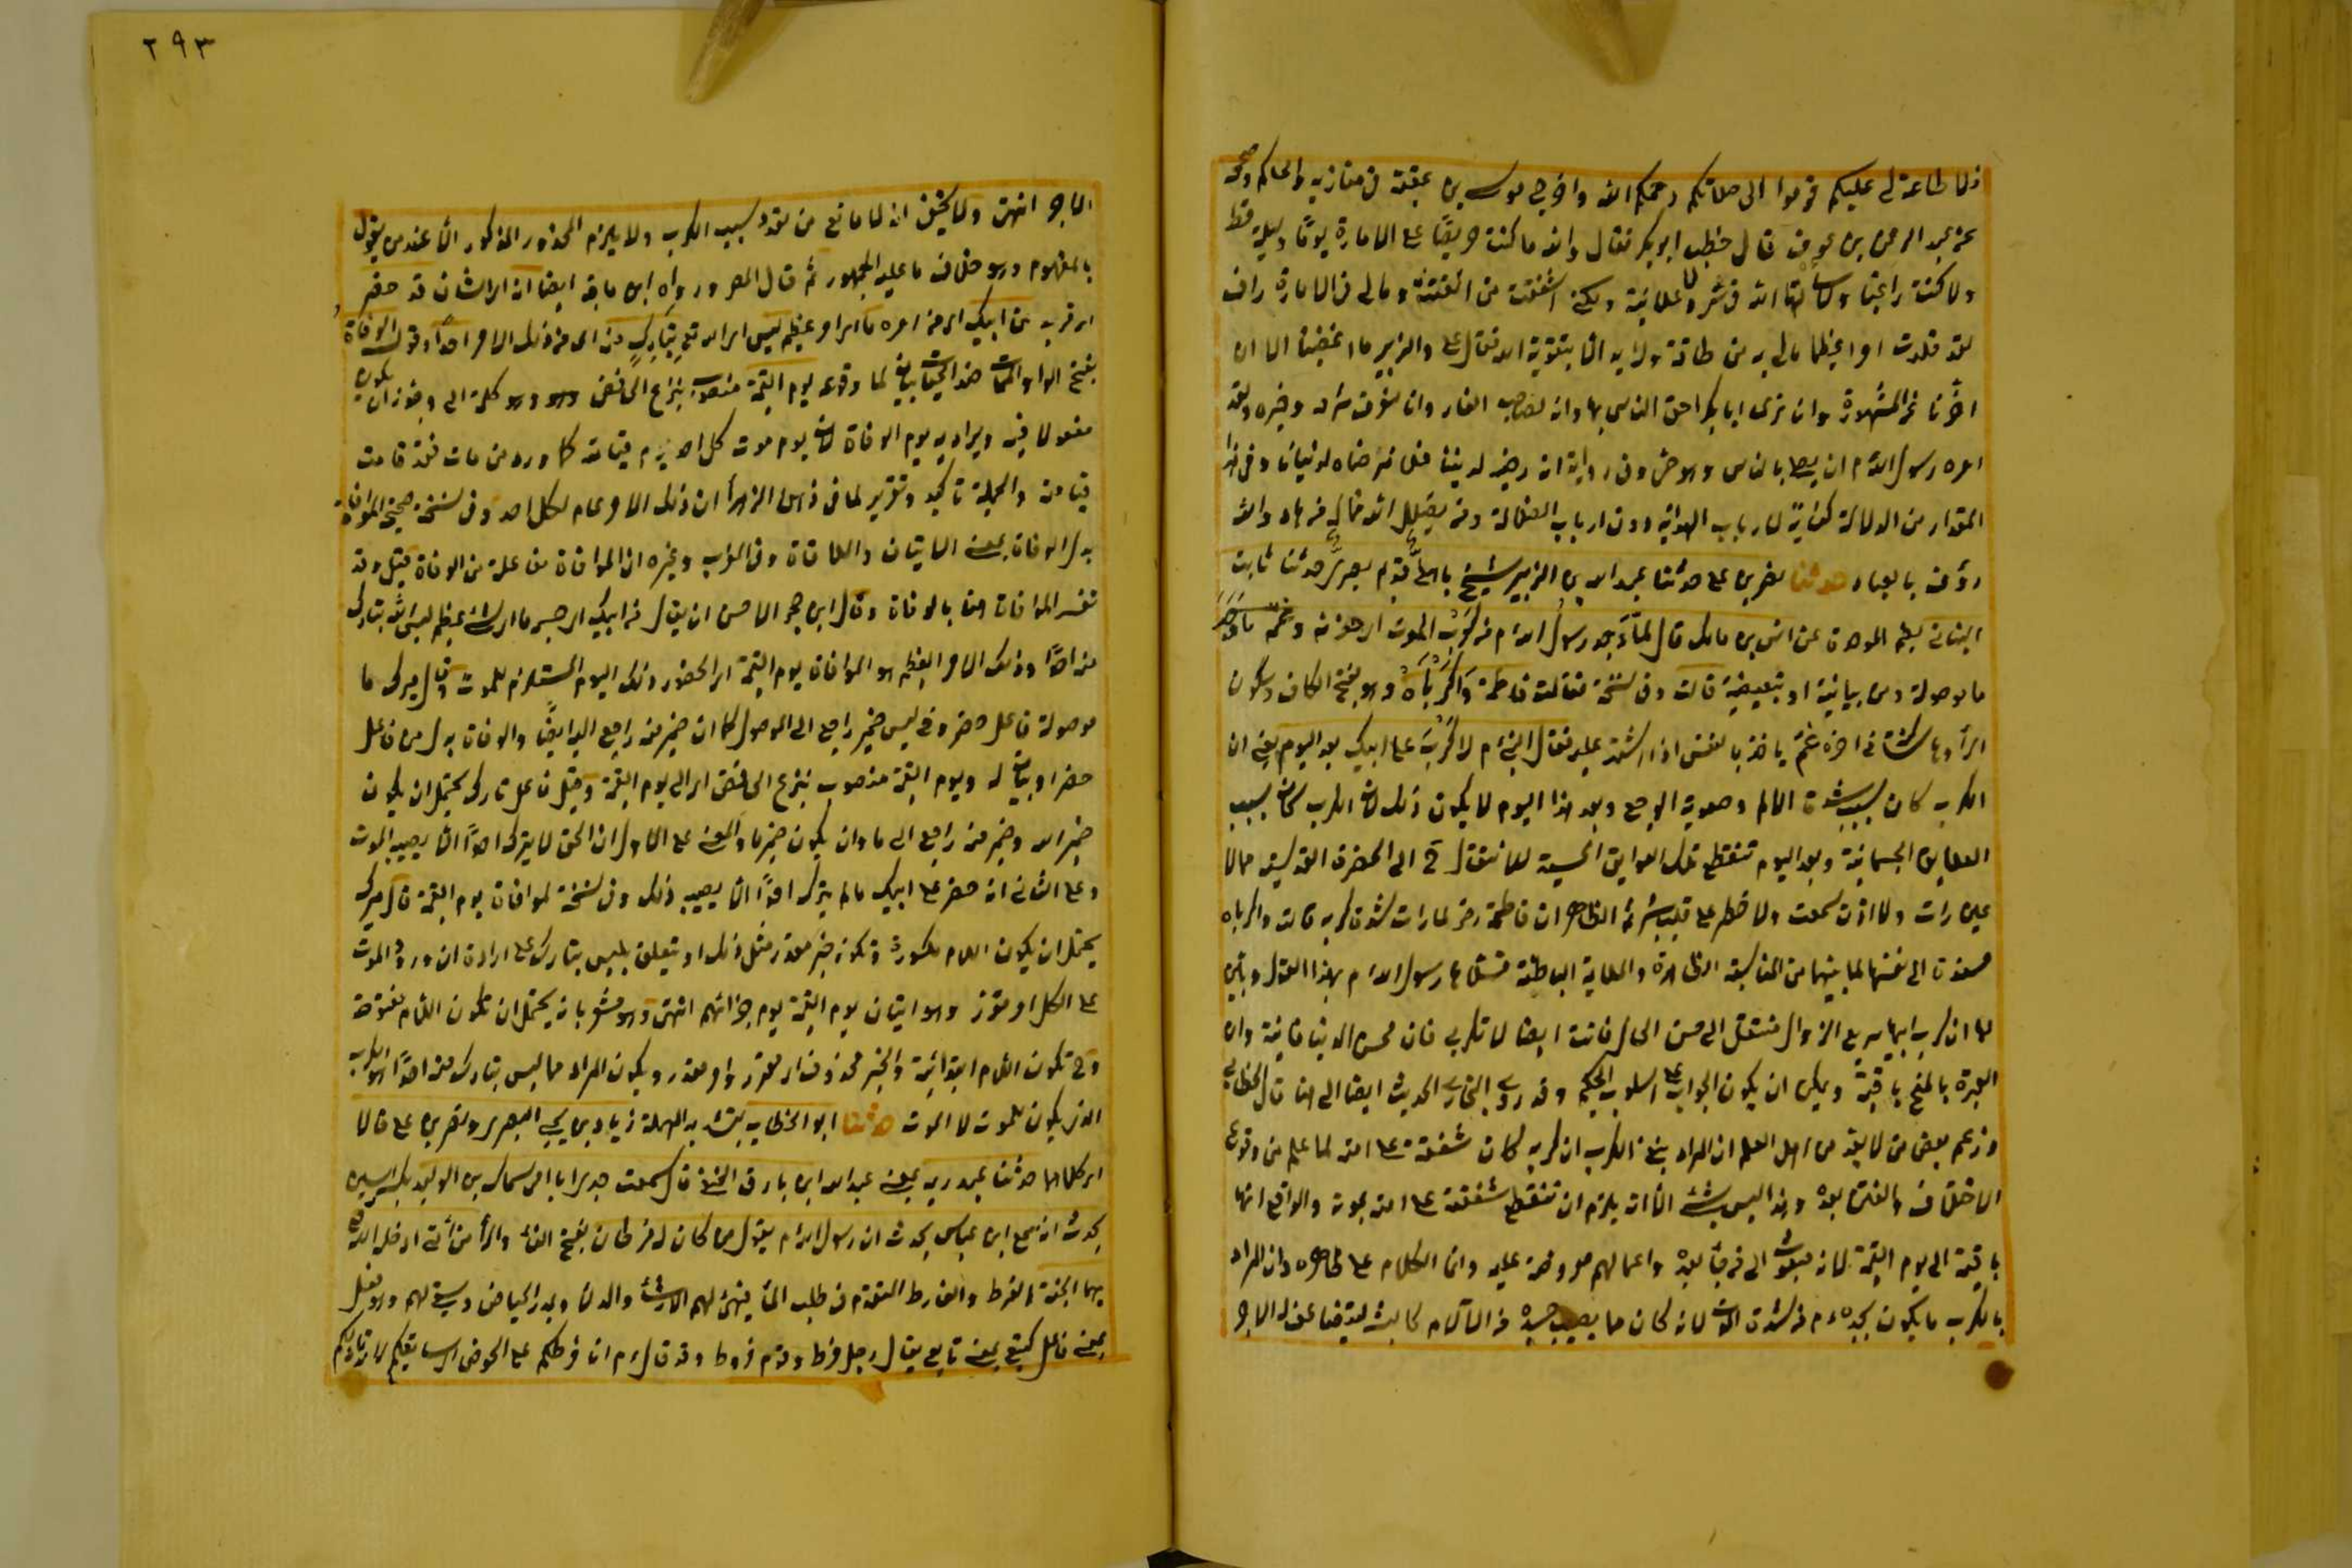 فلا طاعة لي عليكم قوموا الى صلاتكم رحمكم الله واخرج موسى بن عقبة في مغازيه والحاكم وصححه
عن عبد الرحمن بن عوف قال خطب ابو بكر فقال والله ما كنت حريصًا على الامارة يومًا وليلة قط
ولا كنت راغبا ولا سالتها الله في سر ولا علانية ولكني اشفقت من الفتنة ومالي في الامارة راحة
لقد قلدت امرا عظيما مالي به من طاقة ولا يد الا بتقوية الله فقال علي والزبير ما غضبنا الا ان
اخرنا عن المشورة وانا نرى ابا بكر احق الناس بها وانه لصاحب الغار وانا لنعرف شرفه وخيره ولقد
امره رسول الله م ان يصلي بالناس وهو حي وفي رواية انه رضيه لديننا فلا نرضاه لدنيانا وفي هذا
المقدار من الدلالة كفاية لارباب الهداية دون ارباب الضلالة ومن يضلل الله فما له من هاد والله
رؤف بالعباد حدثنا نصر بن علي حدثنا عبد الله بن الزبير شيخ باهلي قديم بصري حدثنا ثابت
البناني بضم الموحدة عن انس بن مالك قال لما وجد رسول الله م من كرب الموت اي حزنه وغمه ما وجد
ما موصولة ومن بيانية او تبعيضية قالت وفي نسخة فقالت فاطمة واكرباه وهو بفتح الكاف وسكون
الراء وهاء ساكنة في اخره غم ياخذ بالنفس اذا اشتد عليه فقال النبي م لا كرب على ابيك بعد اليوم يعني ان
الكرب كان بسبب شدة الالم وصعوبة الوجع وبعد هذا اليوم لا يكون ذلك لان الكرب كان بسبب
العلايق الجسمانية وبعد اليوم تنقطع تلك العوايق الحسية للانتقال ح الى الحضرة القدسية مما لا
عين رات ولا اذن سمعت ولا خطر على قلب بشر ثم الظاهر ان فاطمة رضي لما رات شدة كربه قالت واكرباه
مسندة الى نفسها لما بينهما من المناسبة الظاهرة والملاية الباطنة فسلاها رسول الله م بهذا القول وبين
لها ان كرب ابيها سريع الزوال منتقل الى حسن الحال فانت ايضا لا تكربي فان محن الدنيا فانية وان
العبرة بالمنح باقية ويمكن ان يكون الجواب على اسلوب الحكيم وقد روى البخاري الحديث ايضا الى هنا قال الخطابي
وزعم بعض من لا يعد من اهل العلم ان المراد بنفي الكرب ان كربه كان شفقة على امته لما علم من وقوع
الاختلاف والفتن بعده وهذا ليس بشئ لانه يلزم ان تنقطع شفقته على امته بموته والواقع انها
باقية الى يوم القيمة لانه مبعوث الى من جاء بعده واعمالهم معروضة عليه وانما الكلام على ظاهره وان المراد
بالكرب ما يكون يجده م من شدة الموت لانه كان مما يصيب جسده من الآلام كالبشر ليتضاعف له الاجر
٢٩٣
الاجر انتهى ولا يخفى انه لا مانع من تعدد سبب الكرب ولا يلزم المحذور المذكور الا عند من يقول
بالمفهوم وهو خلاف ما عليه الجمهور ثم قال المص ورواه ابن ماجة ايضا انه اي الشان قد حضر
اي قرب من ابيك اي من امره ما اي امر عظيم ليس اي الله تع بتارك منه اي من ذلك الامر احدًا وقول الوفاة
بفتح الواو الممات ضد الحيات بيان لما وقوله يوم القيمة منصوب بنزع الخافض وهو كلمة الى وجوز ان يكون
مفعولا فيه ويراد به يوم الوفاة لان يوم موت كل احد يوم قيامته كما ورد من مات فقد قامت
قيامته والجملة تاكيد وتقرير لما في ذهن الزهرا ان ذلك الامر عام لكل احد وفي نسخة صحيحة الموافاة
بدل الوفاة بمعنى الاتيان والملاقاة وفي المغرب وغيره ان الموافاة مفاعلة من الوفاة قيل وقد
تفسر الموافاة هنا بالوفاة وقال ابن حجر الاحسن ان يقال من ابيك اي جسمه ما اي شئ عظيم ليس الله بتارك
منه احدًا وذلك الامر العظيم هو الموافاة يوم القيمة اي الحضور ذلك اليوم المستلزم للموت وقال ميرك ما
موصولة فاعل حضر وفي ليس ضمير راجع الى الموصول كما ان ضمير منه راجع اليه ايضًا والوفاة بدل من فاعل
حضر او بيان له ويوم القيمة منصوب بنزع الخافض اي الى يوم القيمة وقيل فاعل تارك يحتمل ان يكون
ضمير الله وضمير منه راجع الى ما وان يكون ضمير ما والمعنى على الاول ان الحق لا يترك احدًا الا يصيبه الموت
وعلى الثاني انه حضر على ابيك ما لم يترك احدًا الا يصيب ذلك وفي نسخة لموافاة يوم القيمة قال ميرك
يحتمل ان يكون اللام مكسورة وتكون خبر مقدر مثل ذلك او يتعلق بليس بتارك على ارادة ان ورود الموت
على الكل امر مقرر وهو اتيان يوم القيمة يوم جزائهم انتهى وهو مشعر بانه يحتمل ان تكون اللام مفتوحة
وح تكون اللام ابتدائية والخبر محذوف اي مقرر او مقدر ويكون المراد مما ليس بتارك منه احدًا هو الكرب
الذي يكون للموت لا الموت حدثنا ابو الخطاب بتشديد المهملة زياد بن يحيى البصري ونصر بن علي قالا
اي كلاهما حدثنا عبد ربه بمعنى عبد الله ابن بارق الحنفي قال سمعت جدي ابا امي سماك بن الوليد بكسر السين
يحدث انه سمع ابن عباس يحدث ان رسول الله م يقول من كان له فرطان بفتح الفاء والراء من امتي ادخله الله تع
بهما الجنة الفرط والفارط المتقدم في طلب الماء فيهئ لهم الارشاء والدلاء ويمدر الحياض ويستقي لهم وهو فعل
بمعنى فاعل كتبع بمعنى تابع يقال رجل فرط وقوم فرط وقد قال م انا فرطكم على الحوض اي سابقكم